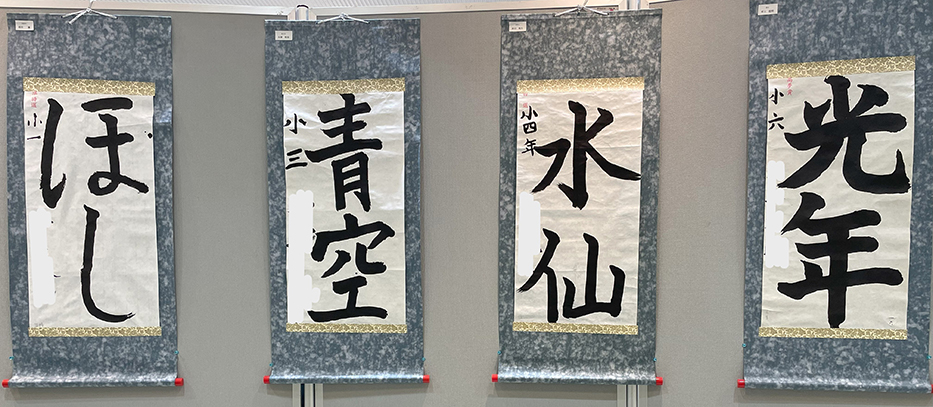 ほし
小一
青空
小三
水仙
小四年
光年
小六